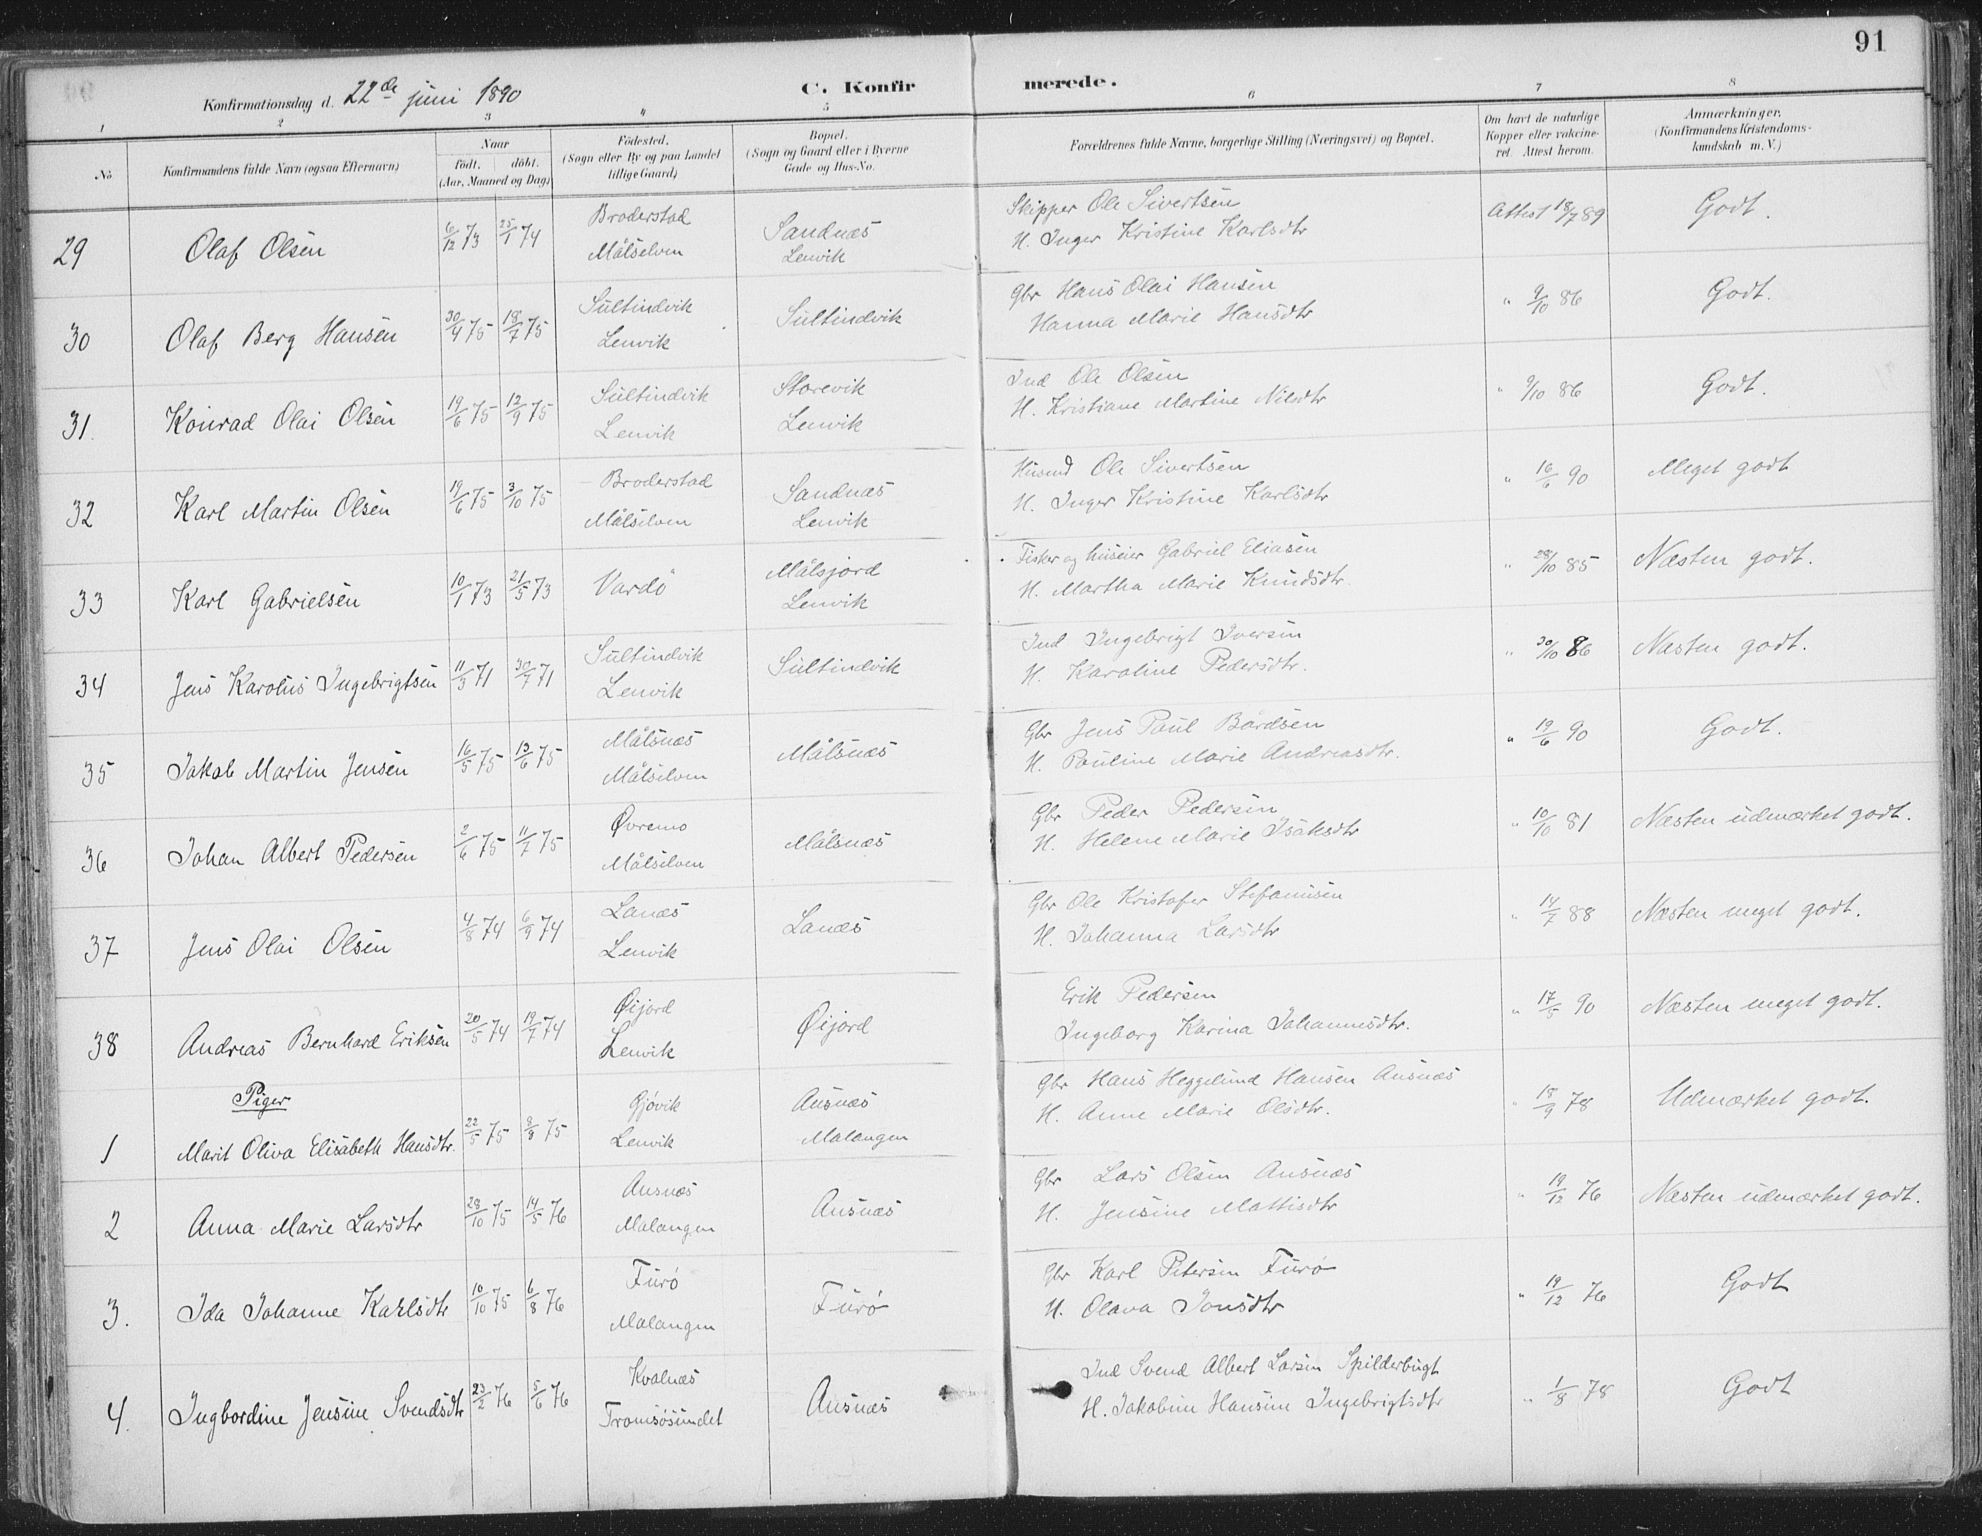 91
Konfirmationsdag d. 22de juni 1890
C. Konfirmerede.
1 2 3 4 5 6 7 8
No
Konfirmandens fulde Navn (ogsaa Efternavn)
Naar
födt. döbt.
(Aar, Maaned og Dag)
Födested.
(Sogn eller By og paa Landet
tillige Gaard)
Bopæl.
(Sogn og Gaard eller i Byerne
Gade og Hus-No.
Forældrenes fulde Navne, borgerlige Stilling (Næringsvei) og Bopæl.
Om havt de naturlige
Kopper eller vakcine-
ret. Attest herom.
Anmærkninger.
(Konfirmandens Kristendoms-
kundskab m. V.)
29 Olaf Olsen 6/12 73 25/1 74 Broderstad Målselven Sandnæs Lenvik
Skipper Ole Sivertsen
H. Inger Kristine Karlsdtr
Attest 18/7 89 Godt.
30 Olaf Berg Hansen 30/4 75 18/7 75 Sultindvik Lenvik Sultindvik
Gbr Hans Olai Hansen
Hanna Marie Hansdtr
" 9/10 86 Godt.
31. Konrad Olai Olsen 19/6 75 12/9 75 Sultindvik Lenvik Storevik Lenvik
Ind Ole Olsen
H. Kristiane Martine Nilsdtr
" 9/10 86 Godt.
32 Karl Martin Olsen 19/6 75 3/10 75 Broderstad Målselven Sandnæs Lenvik
Husmd Ole Sivertsen
H. Inger Kristine Karlsdtr
" 16/6 90 Meget godt
33 Karl Gabrielsen 10/1 73 21/5 73 Vardö Målsjord Lenvik
Fisker og huseier Gabriel Eliasen
H. Martha Marie Knudsdtr.
" 28/10 85 Næsten godt.
34 Jens Karolus Ingebrigtsen 11/3 71 30/7 71 Sultindvik Lenvik Sultindvik
Ind Ingebrigt Iversen
H. Karoline Pedersdtr.
" 30/10 86 Næsten godt.
35 Jakob Martin Jensen 16/5 75 13/6 75 Målsnæs Målselven Målsnæs
Gbr Jens Paul Bårdsen
H. Pauline Marie Andreasdtr.
" 19/6 90 Godt.
36 Johan Albert Pedersen 2/6 75 11/7 75 Øvremo Målselven Målsnæs
Gbr Peder Pedersen
H. Helene Marie Isaksdtr
" 10/10 81 Næsten udmærket godt.
37 Jens Olai Olsen 4/8 74 6/9 74 Lanæs Lenvik Lanæs
Gbr Ole Kristofer Stefanusen
H. Johanna Larsdtr
" 14/7 88 Næsten meget godt.
38 Andreas Bernhard Eriksen 20/5 74 19/7 74 Øijord Lenvik Øijord
Erik Pedersen
Ingeborg Karina Johannesdtr.
" 17/5 90 Næsten meget godt.
Piger
1 Marit Oliva Elisabeth Hansdtr. 22/5 75 8/8 75 Gjøvik Lenvik Ansnæs Malangen
Gbr Hans Heggelund Hansen Ansnæs
H. Anne Marie Olsdtr.
" 18/9 78 Udmærket godt.
2 Anna Marie Larsdtr 28/10 75 14/5 76 Ansnæs Malangen Ansnæs
Gbr Lars Olsen Ansnæs
H. Jensine Mattisdtr
" 19/12 76 Næsten udmærket godt.
3. Ida Johanne Karlsdtr 10/10 75 6/8 76 Furö Malangen Furö
Gbr Karl Petersen Furö
H. Olava Jonsdtr
" 19/12 76 Godt
4. Ingbordine Jensine Svendsdtr 23/2 76 5/6 76 Kvalnæs Tromsösundet Ansnæs
Ind Svend Albert Larsen Spilderbugt
H. Jakobine Hansine Ingebrigtsdtr
" 1/8 78 Godt